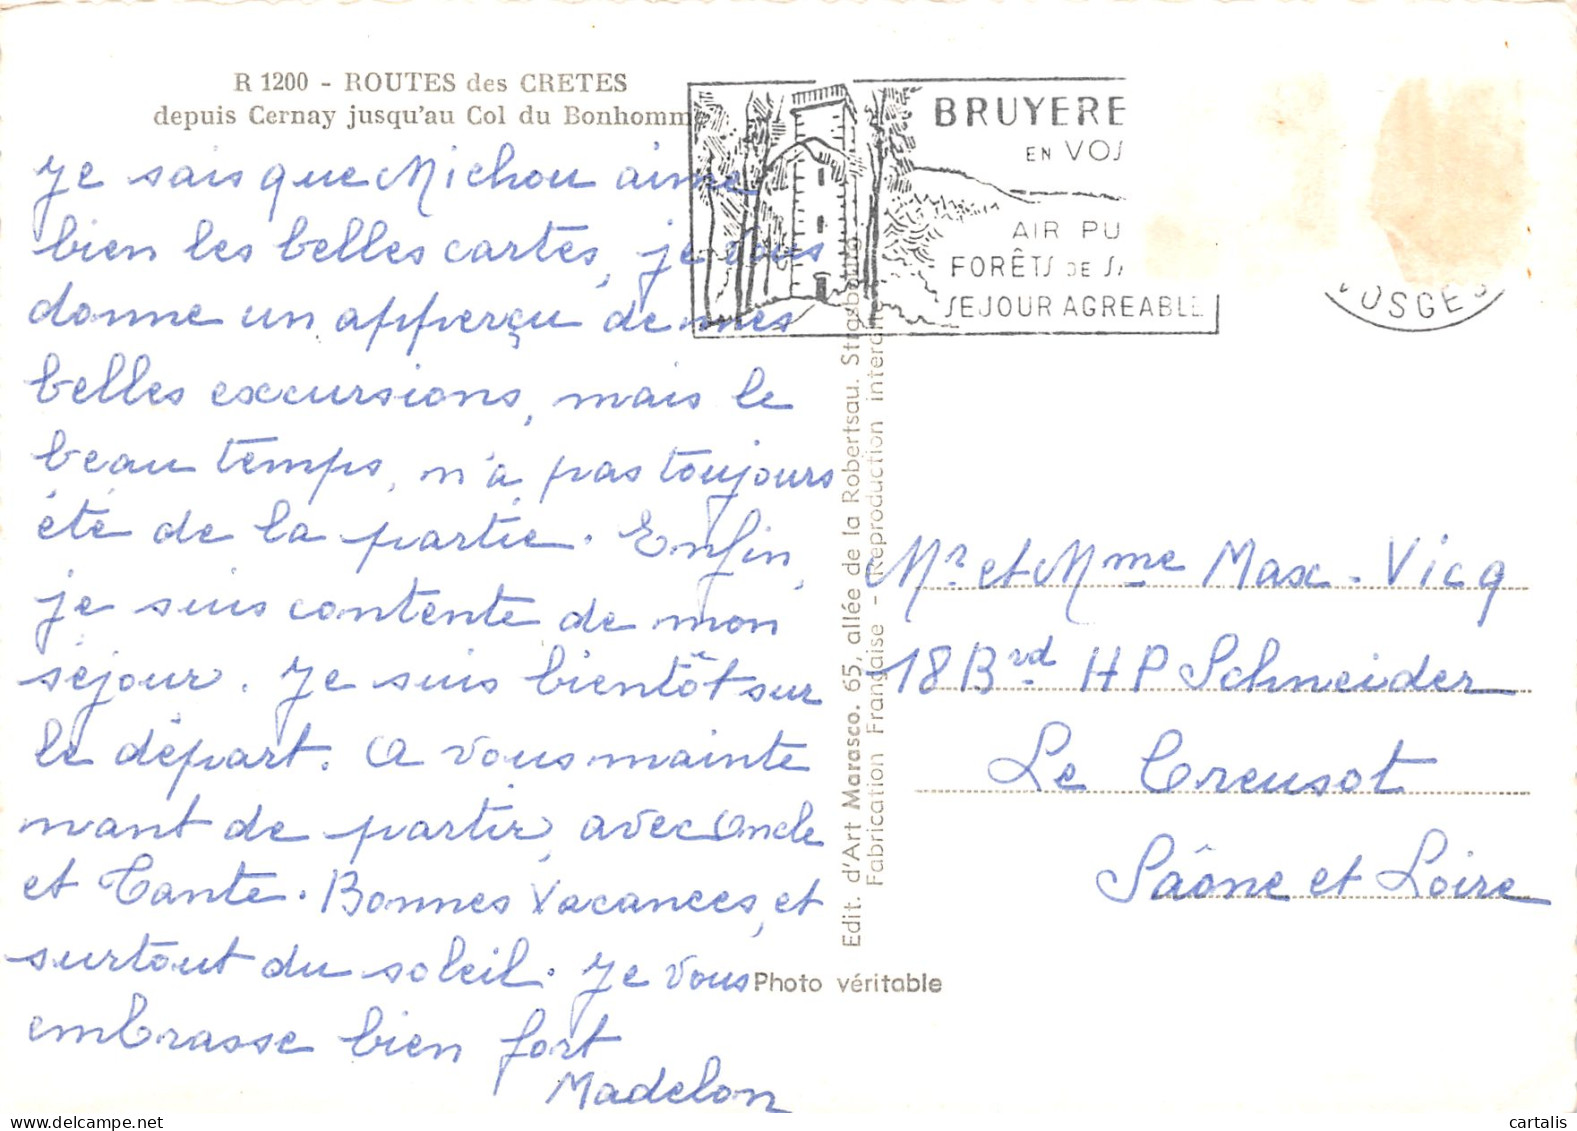 R 1200 - ROUTES des CRETES
depuis Cernay jusqu'au Col du Bonhomm
Je sais que Michou aime
bien les belles cartes, je vous
donne un apperçu de mes
belles excursions, mais le
beau temps, n'a pas toujours
été de la partie. Enfin,
je suis contente de mon
séjour. Je suis bientôt sur
le départ. A vous mainte
nant de partir, avec Oncle
et Tante. Bonnes Vacances, et
surtout du soleil. Je vous
embrasse bien fort
Madelon
BRUYERE
EN VOS
AIR PU
FORÊTS DE SA
SEJOUR AGREABLE
VOSGES
Edit. d'Art Marasco. 65, allée de la Robertsau. Strasbourg
Fabrication Française - Reproduction interd
Photo véritable
Mr et Mme Max-Vicq
18 Bvd HP Schneider
Le Creusot
Saône et Loire
cartalis
www.delcampe.net